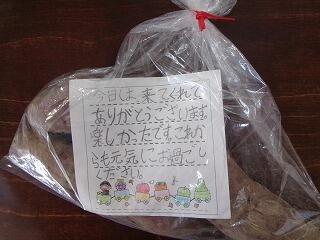 今日は、来てくれて
ありがとうございます。
楽しかたです。これか
らも元気にお過ごし
ください。